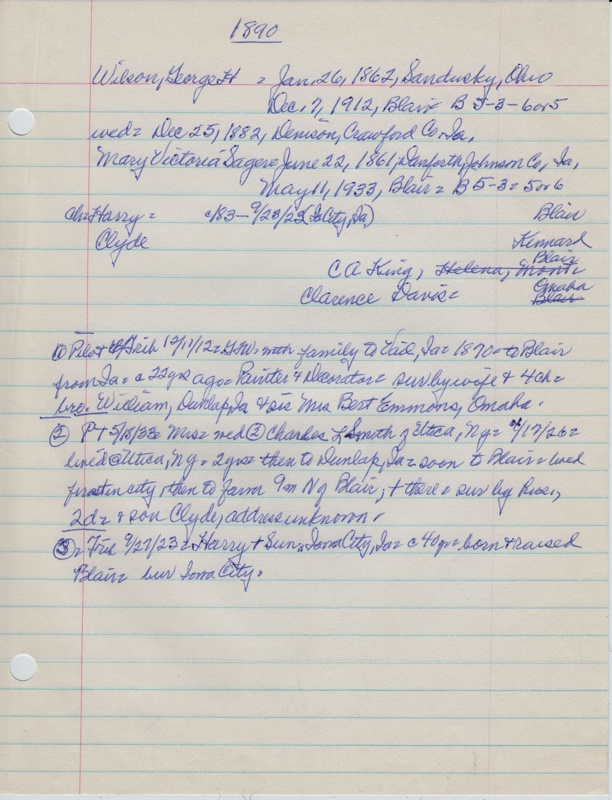 1890
Wilson, George H = Jan. 26, 1862, Sandusky, Ohio
Dec. 7, 1912, Blair = B 5-3-6or5
wed = Dec 25, 1882, Denison, Crawford Co. Ia,
Mary Victoria Sagere June 22, 1861, Danforth, Johnson Co, Ia,
May 11, 1933, Blair = B 5-3-5or6
ch = Harry = c/83 – 9/23/23 (Ia City, Ia) Blair
Clyde Kennard
Blair
C A King, Helena, Mont =
Omaha
Clarence Davis = Blair
① Pilot & Trib 12/11/12 = G.W. with family to Vail, Ia = 1890 = to Blair
from Ia = c 22 yrs ago = Painter & Decorator = sur by wife & 4 ch =
bro = William, Dunlap, Ia & sis Mrs Bert Emmons, Omaha.
② P & 5/18/33 = Mrs = wed ② Charles Smith of Utica, Ny = 17/26 =
lived @ Utica, Ny = 2 yrs = then to Dunlap, Ia = soon to Blair = lived
first in city, then to farm 9m N of Blair, & there = sur by
2d = & son Clyde, address unknown.
③ = Trib 9/27/23 = Harry & Sun, Iowa City, Ia = c 40 yr = born & raised
Blair = bur Iowa City.